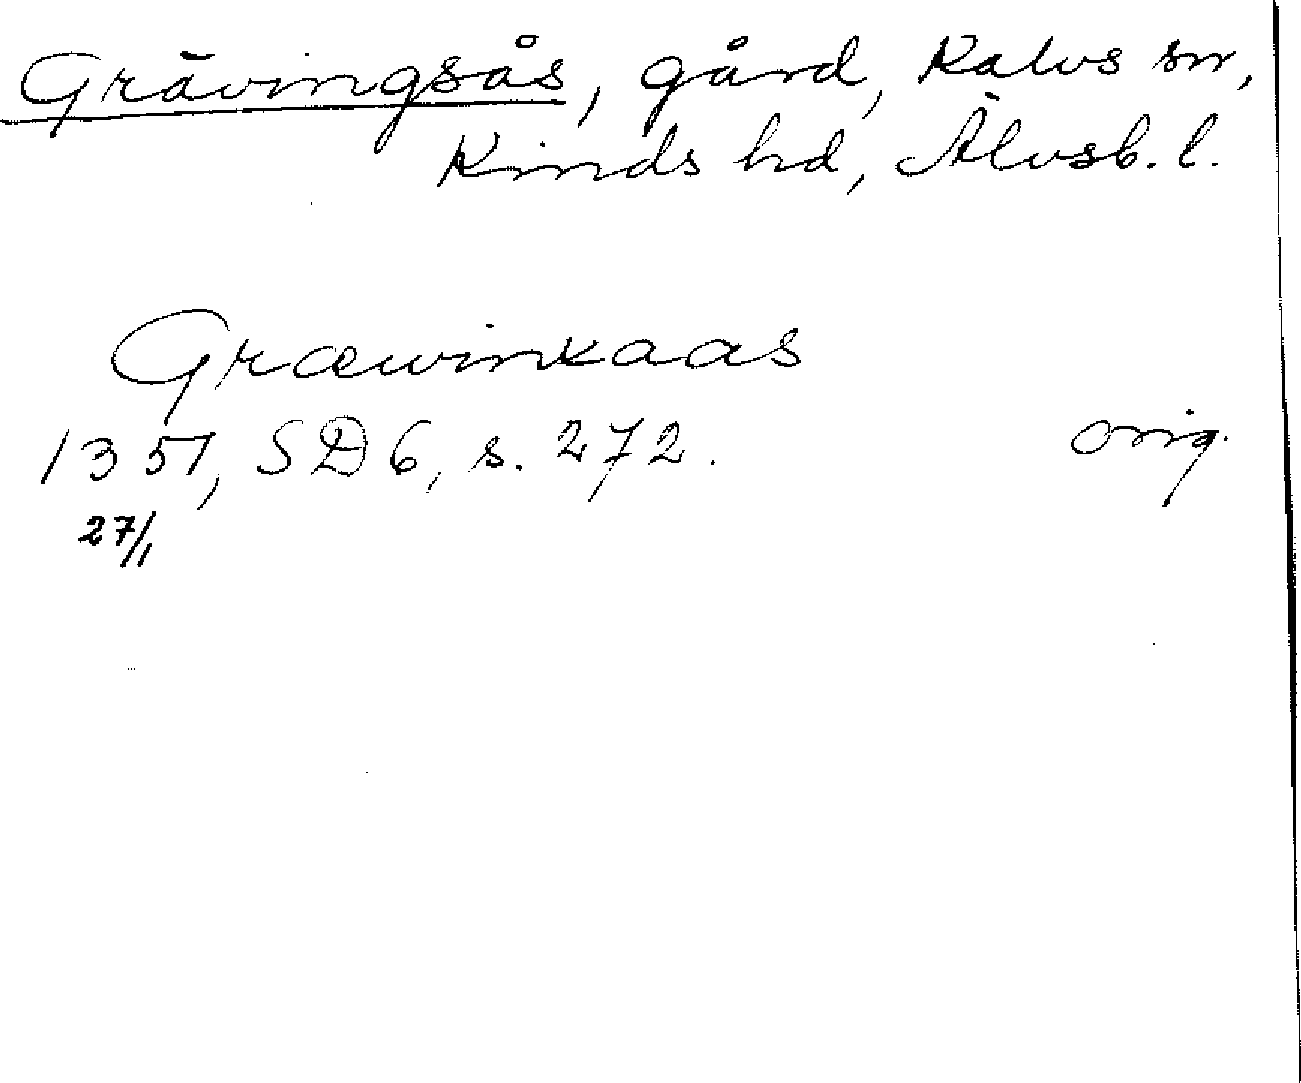 Grävingsås, gård, Kalvs sn,
Kinds hd, Älvsb. l.
Græwinkaas
1351, SD 6, s. 272. orig.
27/1